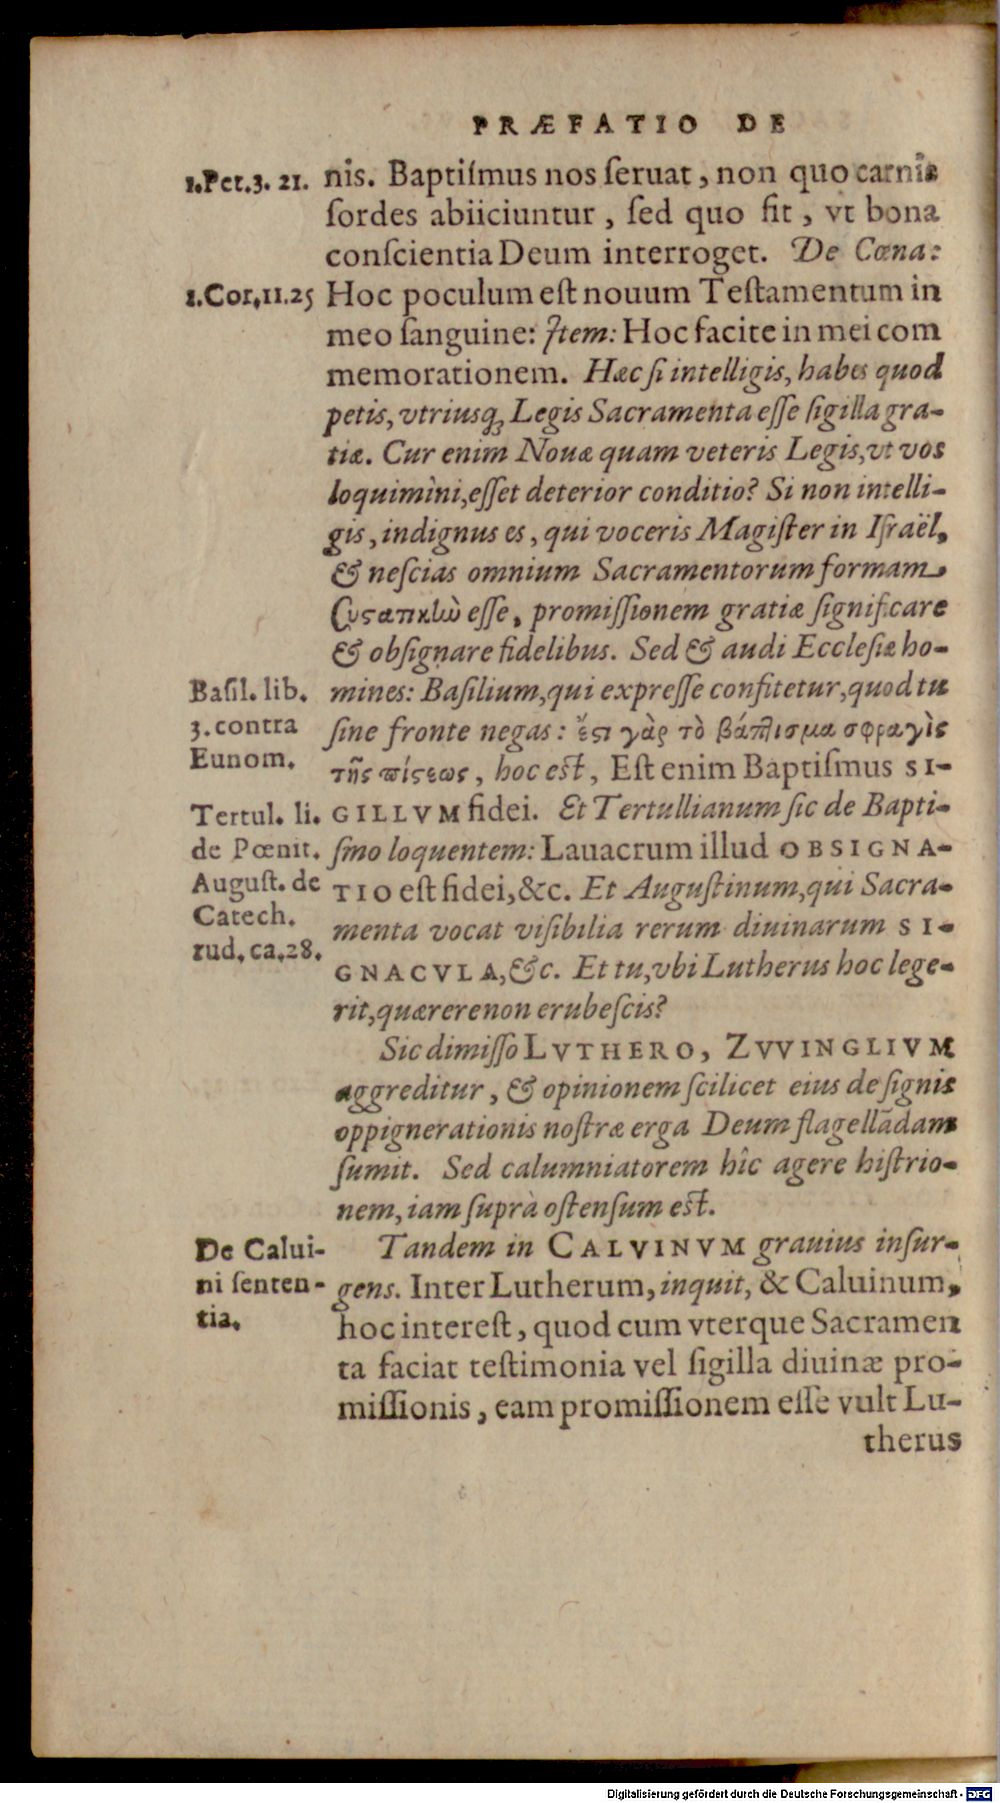 PRÆFATIO DE
1.Pet.3. 21.
nis. Baptiſmus nos ſeruat, non quo carnis
ſordes abiiciuntur, ſed quo fit, vt bona
conſcientia Deum interroget. De Cœna:
1.Cor.11.25
Hoc poculum eſt nouum Teſtamentum in
meo ſanguine: Item: Hoc facite in mei com
memorationem. Hæc ſi intelligis, habes quod
petis, vtriusq; Legis Sacramenta eſſe ſigilla gra-
tiæ. Cur enim Nouæ quam veteris Legis, vt vos
loquimini, eſſet deterior conditio? Si non intelli-
gis, indignus es, qui voceris Magiſter in Iſraël,
& neſcias omnium Sacramentorum formam
ϛυϛατικὴν eſſe, promiſſionem gratiæ ſignificare
& obſignare fidelibus. Sed & audi Eccleſiæ ho-
Baſil. lib.
3. contra
Eunom.
mines: Baſilium, qui expreſſe confitetur, quod tu
ſine fronte negas: ἔϛι γὰρ τὸ βάπτισμα σφραγὶς
τῆς πίϛεως, hoc eſt, Eſt enim Baptiſmus SI-
Tertul. li.
de Pœnit.
GILLVM fidei. Et Tertullianum ſic de Bapti-
ſmo loquentem: Lauacrum illud OBSIGNA-
Auguſt. de
Catech.
rud. ca.28.
TIO eſt fidei, &c. Et Auguſtinum, qui Sacra-
menta vocat viſibilia rerum diuinarum SI-
GNACVLA, &c. Et tu, vbi Lutherus hoc lege-
rit, quærere non erubeſcis?
Sic dimiſſo LVTHERO, ZVVINGLIVM
aggreditur, & opinionem ſcilicet eius de ſignis
oppignerationis noſtræ erga Deum flagellãdam
ſumit. Sed calumniatorem hîc agere hiſtrio-
nem, iam ſuprà oſtenſum eſt.
De Calui-
ni ſenten-
tia.
Tandem in CALVINVM grauius inſur-
gens. Inter Lutherum, inquit, & Caluinum,
hoc intereſt, quod cum vterque Sacramen
ta faciat teſtimonia vel ſigilla diuinæ pro-
miſſionis, eam promiſſionem eſſe vult Lu-
therus
Digitalisierung gefördert durch die Deutsche Forschungsgemeinschaft - DFG